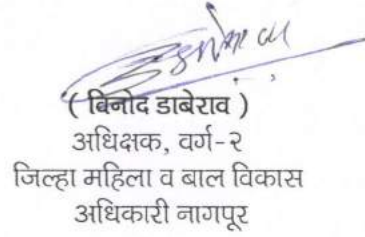 ( बिनोद डाबेराव )
अधिक्षक, वर्ग-२
जिल्हा महिला व बाल विकास
अधिकारी नागपूर